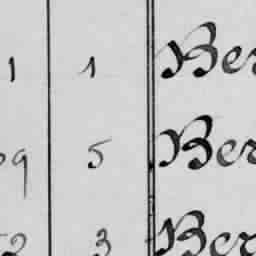 1 1 Ber
9 5 Ber
2 3 Ber